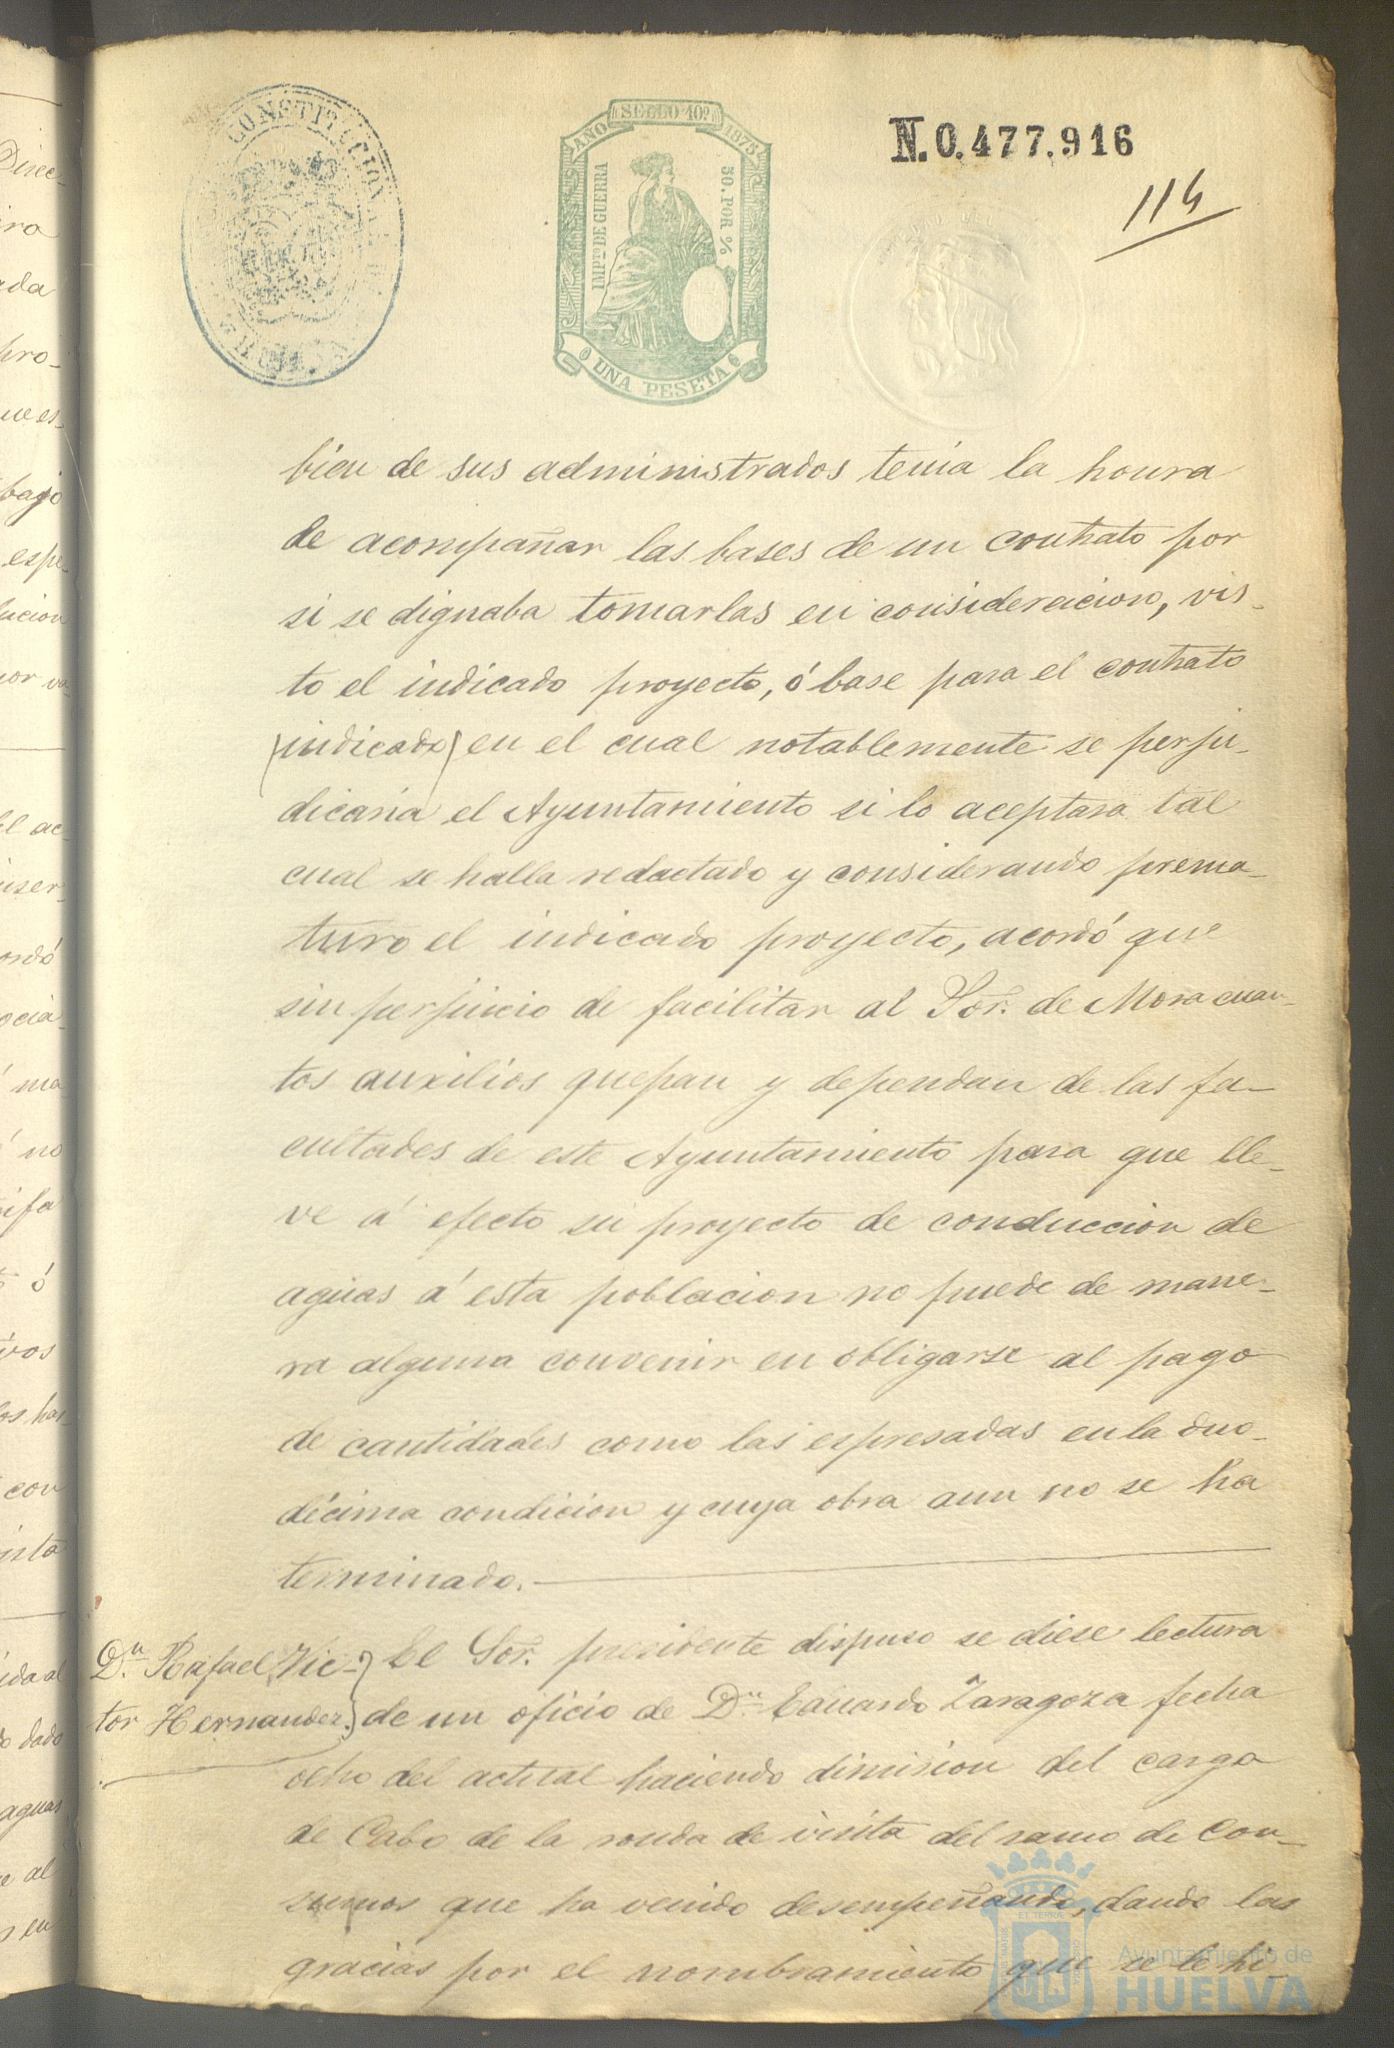 CONSTITUCIONAL
HUELVA
SELLO 10º
AÑO 1875
IMPTO DE GUERRA
50. POR %
UNA PESETA
N.0.477.916
114
bien de sus administrados tenia la honra
de acompañar las bases de un contrato por
si se dignaba tomarlas en consideracion, vis-
to el indicado proyecto, ó base para el contrato
(indicado) en el cual notablemente se perju-
dicaria el Ayuntamiento si lo aceptara tal
cual se halla redactado y considerando prema-
turo el indicado proyecto, acordó que
sin perjuicio de facilitar al Sor. de Mora cuan-
tos auxilios quepan y dependan de las fa-
cultades de este Ayuntamiento para que lle-
ve á efecto su proyecto de conduccion de
aguas á esta poblacion no puede de mane-
ra alguna convenir en obligarse al pago
de cantidades como las espresadas en la duo-
décima condicion y cuya obra aun no se ha
terminado.
Dn. Rafael Vic-
tor Hernandez.
El Sor. presidente dispuso se diese lectura
de un oficio de Dn Eduardo Zaragoza fecha
ocho del actual haciendo dimision del cargo
de Cabo de la ronda de visita del ramo de Con-
sumos que ha venido desempeñando, dando las
gracias por el nombramiento que se le hi-
Ayuntamiento de
HUELVA